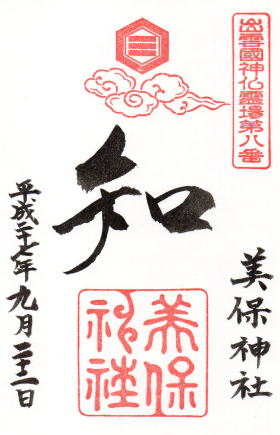 出雲國神仏靈場第八番
美保神社
知
美保
神社
平成二十七年九月二十二日